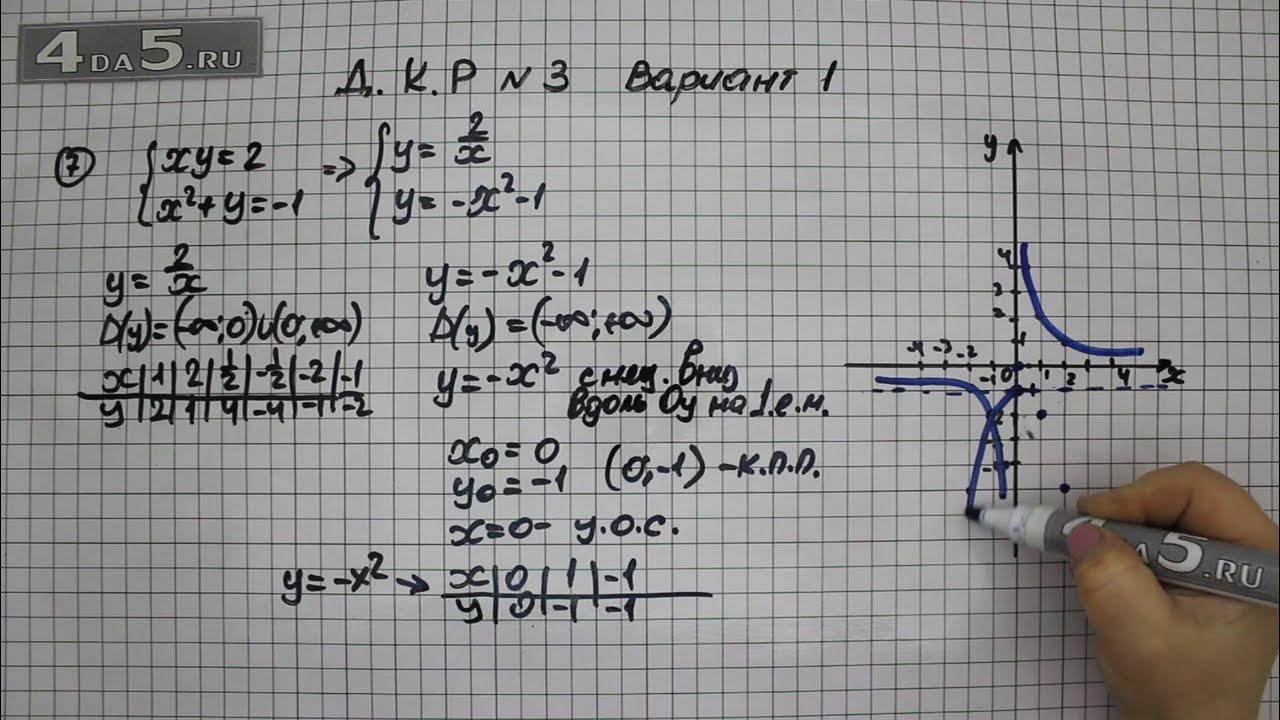 4DA5.RU
Д. К. Р N 3 Вариант 1
7 { xy = 2 => { y = 2/x
x² + y = -1 y = -x² - 1
y = 2/x
D(y) = (-∞; 0) ∪ (0; +∞)
x | 1 | 2 | 1/2 | -1/2 | -2 | -1
y | 2 | 1 | 4 | -4 | -1 | -2
y = -x² - 1
D(y) = (-∞; +∞)
y = -x² смещ. вниз
вдоль Oy на 1.е.м.
x₀ = 0
y₀ = -1 (0, -1) - к.п.п.
x = 0 - у.о.с.
y = -x² → x | 0 | 1 | -1
y | 0 | -1 | -1
y
4
3
2
1
-4 -3 -2 -1 0 1 2 4 x
DA5.RU